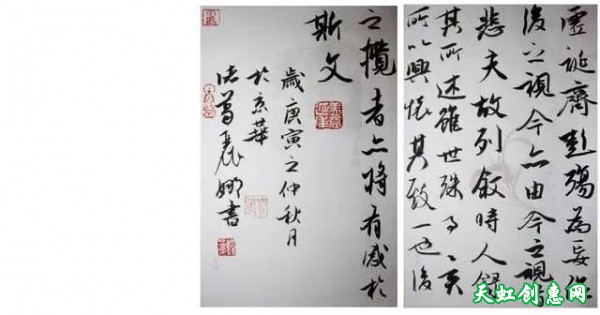 虚诞齐彭殇为妄作
後之視今亦由今之視
悲夫故列叙時人録
其所述雖世殊事異
所以興懷其致一也後
之攬者亦将有感於
斯文
歲庚寅之仲秋月
於京華
書
天虹创惠网